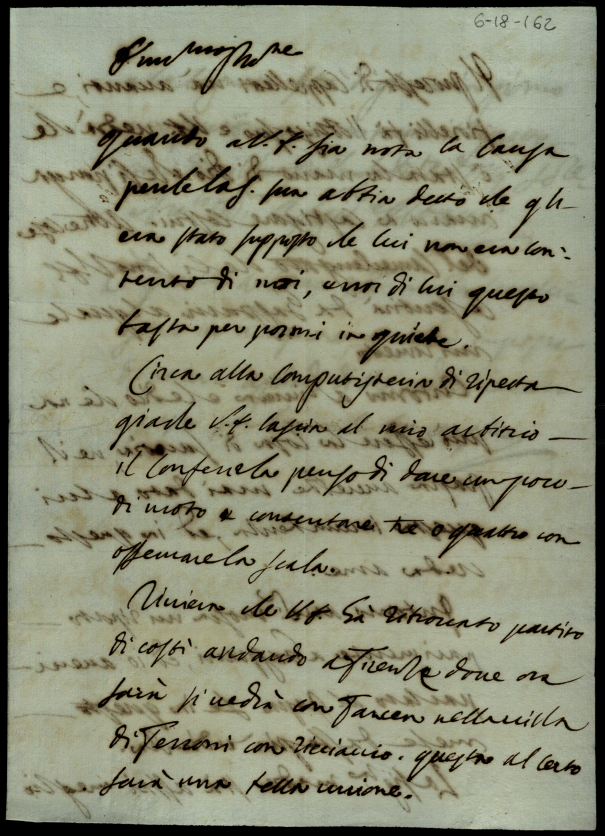 6-18-162
quando a V.S. sia nota la causa
perche la S. sua abbia detto che gli
era stato supposto che lui non era con:
tento di noi, e noi di lui questo
basta per porsi in quiete.
Circa alla Computisteria di Ripetta
giache V.S. lascia al mio arbitrio
il Conferirla penso di dare un poco
di moto e consentare tre o quattro con
osservare la scala.
che V.S. hà ritrovato partito
di costì andando a Firenze dove ora
sarà si vedrà con nella villa
di con questa al certo
sarà una bella unione.